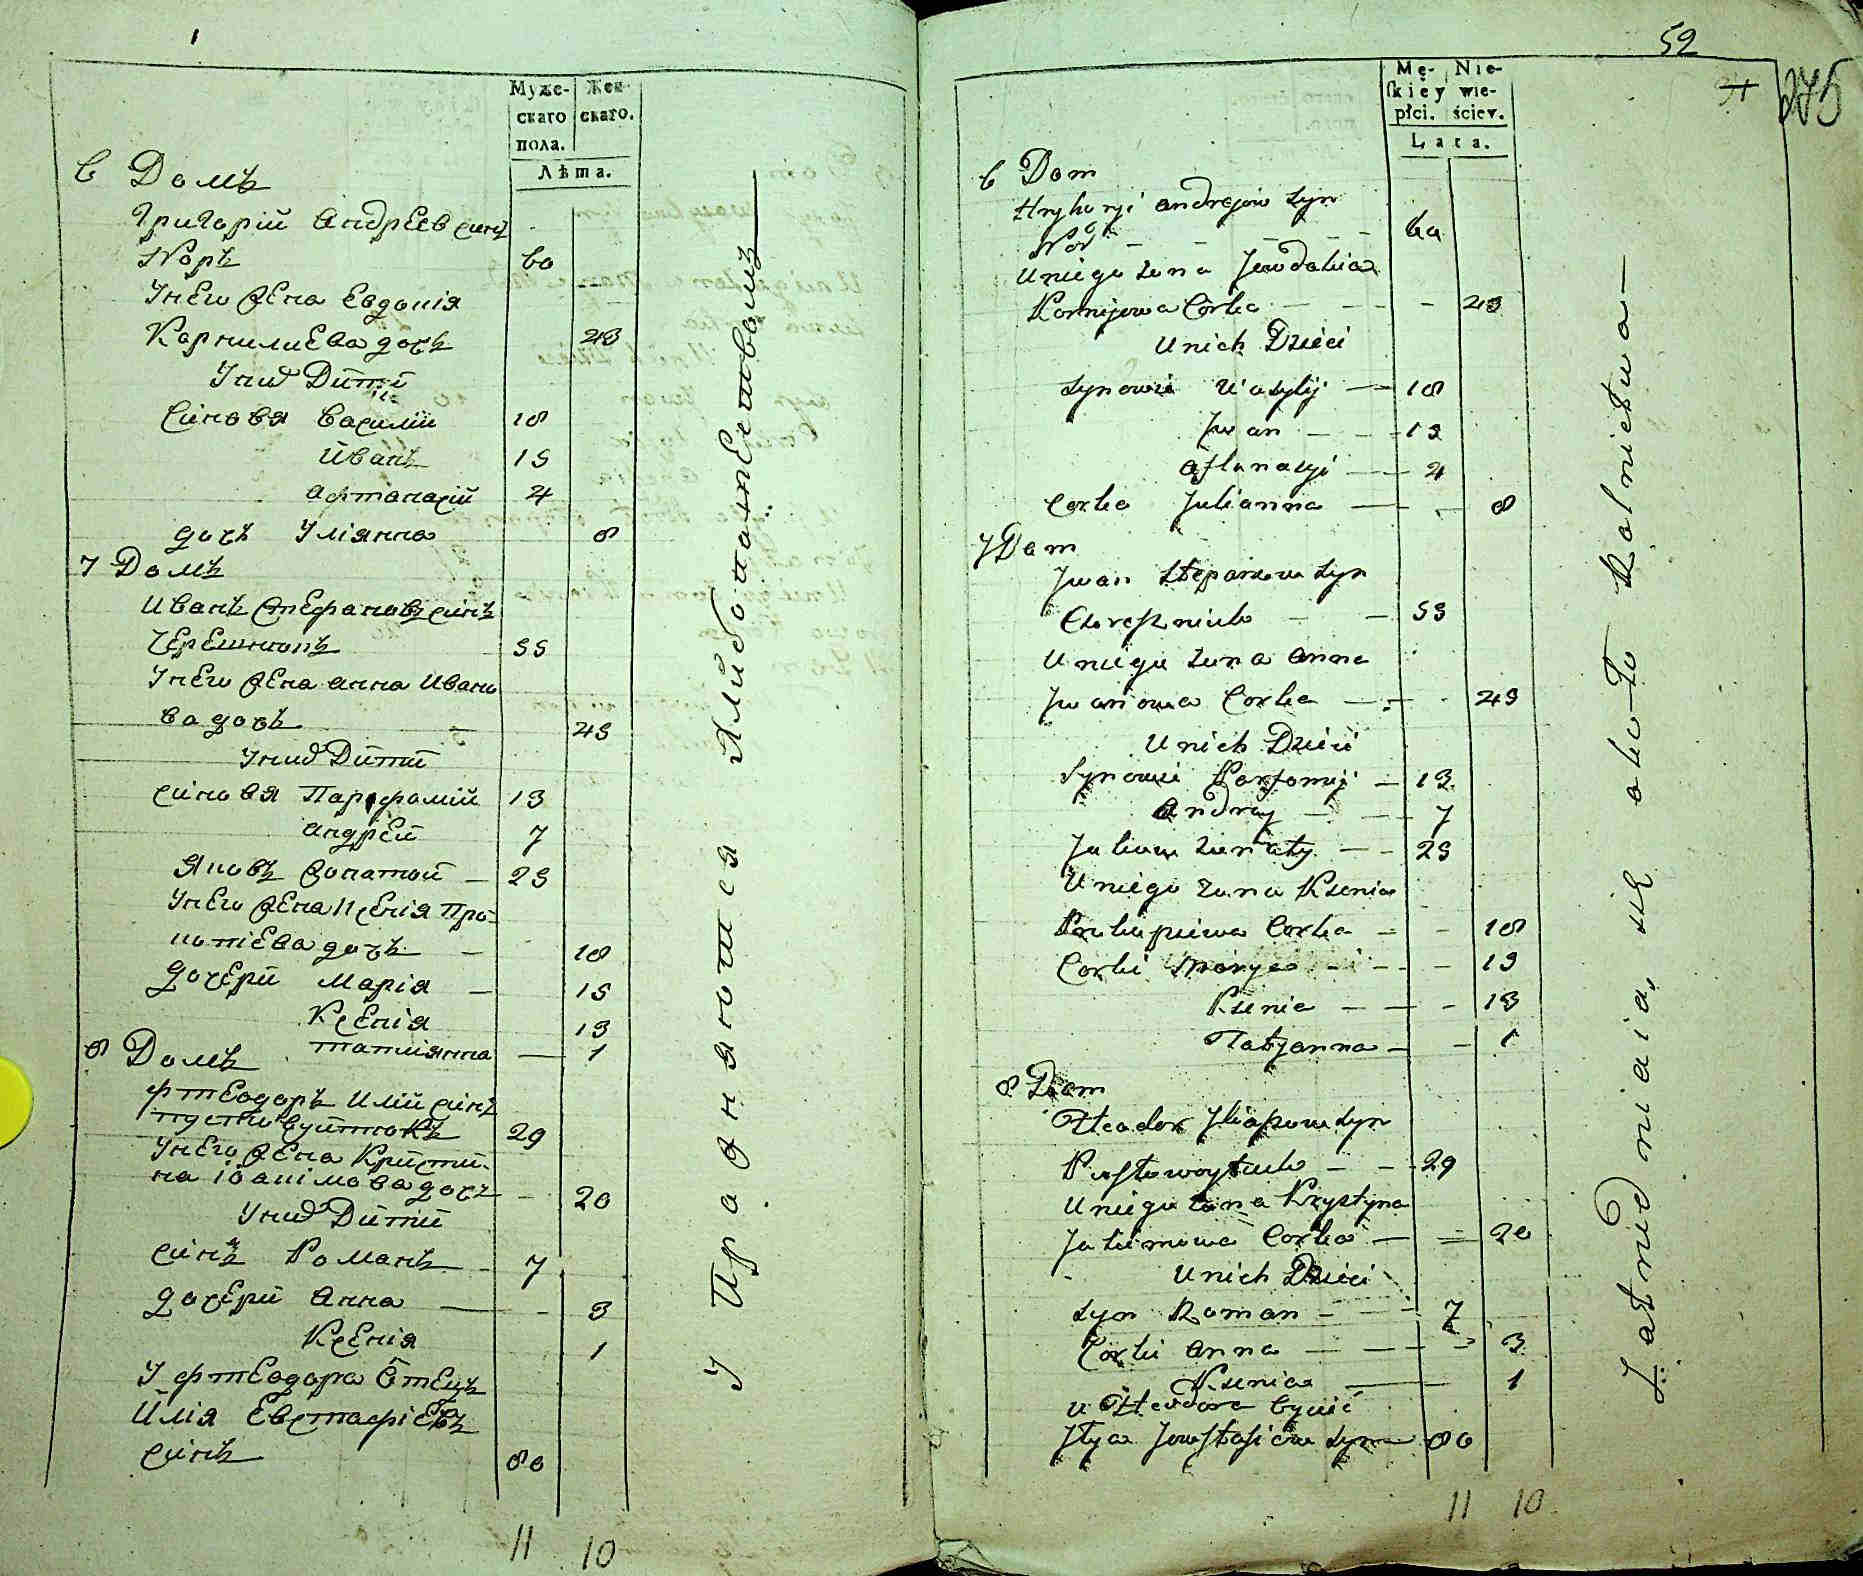 Муже-
скаго
пола.
Жен-
скаго.
Лѣта.
6 Домъ
Григорій Андрѣев синъ
60
Унего жена Евдокія
Корнилиева дочъ 43
Униѣ Дѣтѣ
Синовя Василій 18
Иванъ 15
Афтанасій 4
дочъ Улиянна 8
7 Домъ
Иванъ Стефановъ синъ
55
Унего жена Анна Ивано
ва дочъ 45
Дѣтѣ
синовя Парфомій 13
Андрѣй 7
Яковъ жонатой 25
Унего жена Ксенія Про-
копіева дочъ 18
дочерѣ Марія 15
Ксенія 13
Татиянна 1
8 Домъ
Фтеодоръ Илій синъ
29
Унего жена Кристи-
на Іоакімова дочъ 20
Дѣтѣ
синъ Романъ 7
дочерѣ Анна 3
Ксенія 1
У Фтеодора Отецъ
Илія Евстафіевъ
синъ 80
11 10
У Пражняются Хлѣбопашествомъ
52
275
Mę-
skiéy
płci.
Nie-
wie-
ściey.
Lata.
6 Dom
Hryhoryi Andrejów syn
60
U niego żona Jewdokia
Kornijowa Corka 43
U nich Dzieci
Synowie Wasylij 18
Jwan 15
Aftanasyi 4
Corka Julianna 8
7 Dom
Jwan Stepanow syn
Czereszniuk 55
U niego żona Anna
Jwanowa Corka 45
U nich Dzieci
Synowie Parfomij 13
Andrzy 7
Jakow żonaty 25
U niego żona Ksenia
Prokopiewa Corka 18
Corki Marya 15
Ksenia 13
Tatyanna 1
8 Dom
Fteodor Jliaszow syn
Pustowoytiuk 29
U niego żona Krystyna
Jakimowa Corka 20
U nich Dzieci
syn Roman 7
Corki Anna 3
Ksenia 1
u Fteodora Oyciec
Jlya Jewstafiów syn 80
11 10
Zatrudniaią się około Rolnictwa